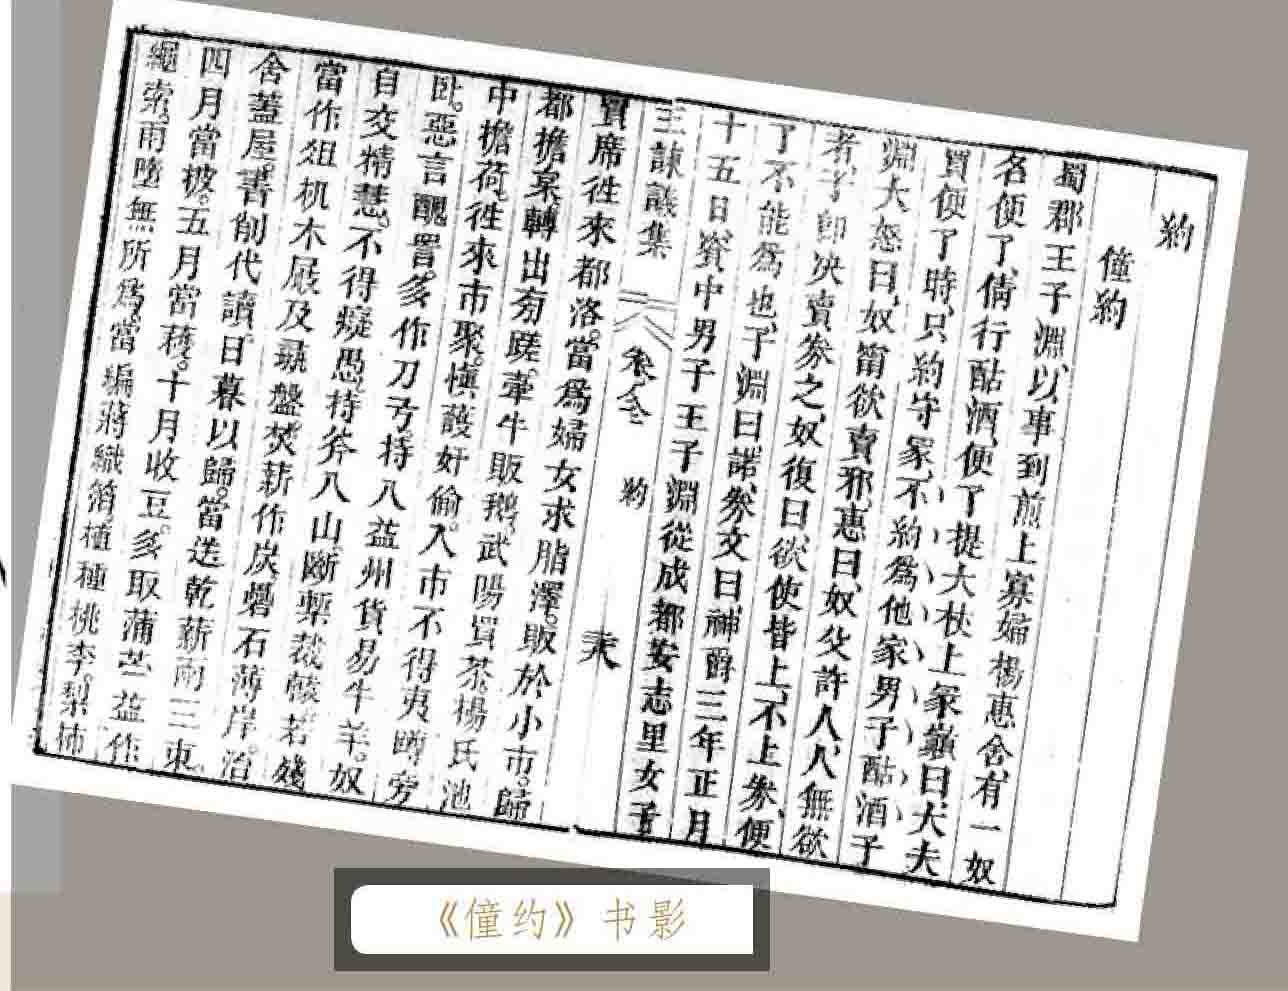 約
僮約
蜀郡王子淵、以事到煎上寡婦楊惠舍、有一奴
名便了、倩行酤酒、便了提大杖上冢巔曰、大夫
買便了時、只約守冢、不約爲他家男子酤酒、子
淵大怒曰、奴甯欲賣邪、惠曰、奴父許人、人無欲
者、子卽決賣券之、奴復曰、欲使皆上、不上券、便
了不能爲也、子淵曰、諾、券文曰、神爵三年正月
十五日、資中男子王子淵、從成都安志里女子
王諫議集 卷全 約 
買席徃來都洛。當爲婦女求脂澤。販於小市。歸
都擔枲。轉出旁蹉。牽牛販鵝。武陽買茶。楊氏池
中擔荷。徃來市聚。愼護奸偷。入市不得夷蹲旁
臥。惡言醜詈。多作刀弓。持入益州貨易牛羊。奴
自交精慧。不得癡愚。持斧入山。斷𨍏裁轅。若殘
當作俎机木屐及彘盤。焚薪作炭。礨石薄岸。治
舍蓋屋。書削代牘。日暮以歸。當送乾薪兩三束。
四月當披。五月當穫。十月收豆。多取蒲苎。益作
繩索。雨墮無所爲。當編蔣織箔。植種桃李。梨柿
《僮约》书影